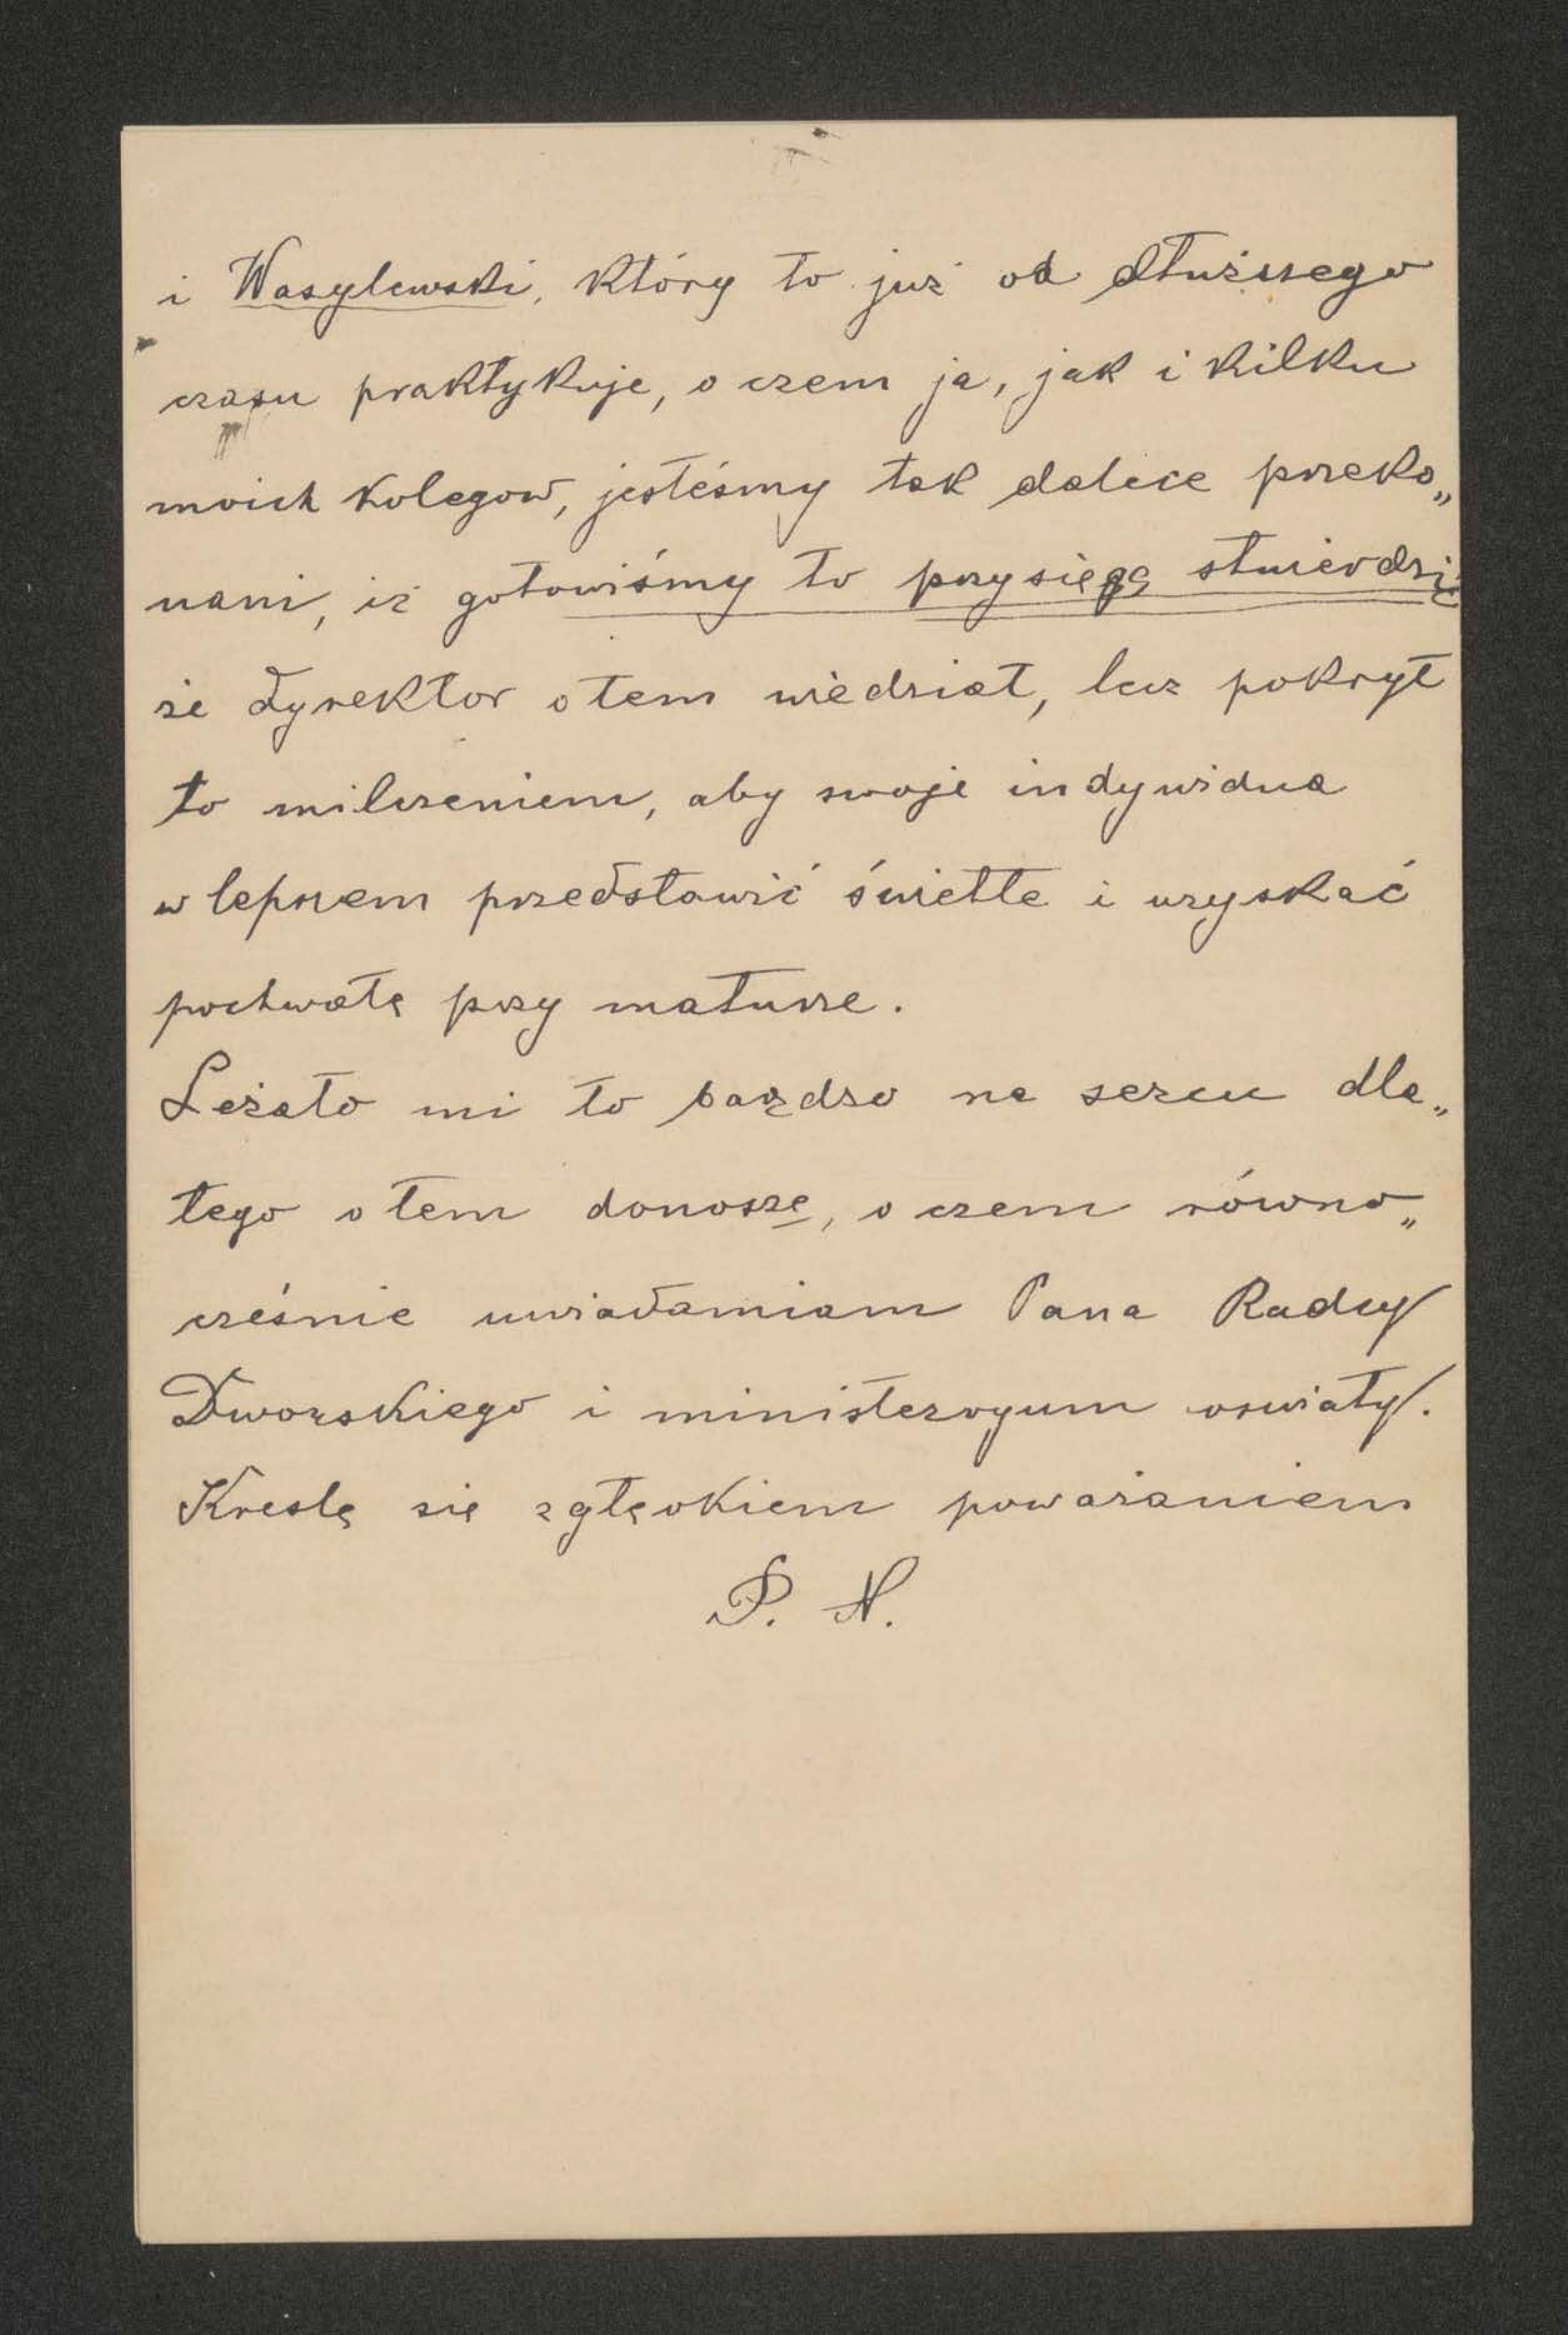 i Wasylewski, który to już od dłuższego
czasu praktykuje, o czem ja, jak i kilku
moich kolegow, jesteśmy tak dalece przeko„
nani, iż gotowiśmy to przysięgą stwierdzić
że dyrektor o tem wiedział, lecz pokrył
to milczeniem, aby swoje indywidua
w lepszem przedstawić świetle i uzyskać
pochwałę przy maturze.
Leżało mi to bardzo na sercu dla„
tego o tem donoszę, o czem równo„
cześnie uwiadamiam Pana Radcy
Dworskiego i ministeryum oswiaty.
Kreslę się zgłębokiem poważaniem
P. N.